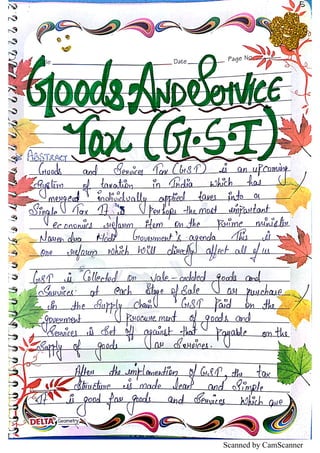 Date Page No.
GOODS AND SERVICE
TAX (G.S.T)
ABSTRACT
Goods and Services Tax (GST) is an upcoming
System of taxation in India which has
merged individually applied taxes into a
Single Tax It is Perhaps the most important
economics reform Item on the prime minister
Narendra Modi Government's agenda This is
one reform which will directly affect all of us
GST is Collected on Vale-added goods and
Services at each Stage of Sale or purchase
in the Supply Chain GST paid on the
Government Procurement of goods and
Services is Set off against that Payable on the
Supply of goods or Services.
After the implemention of GST, the tax
Structure is made lean and Simple
It is good for goods and Services which are
DELTA Geometry
Scanned by CamScanner